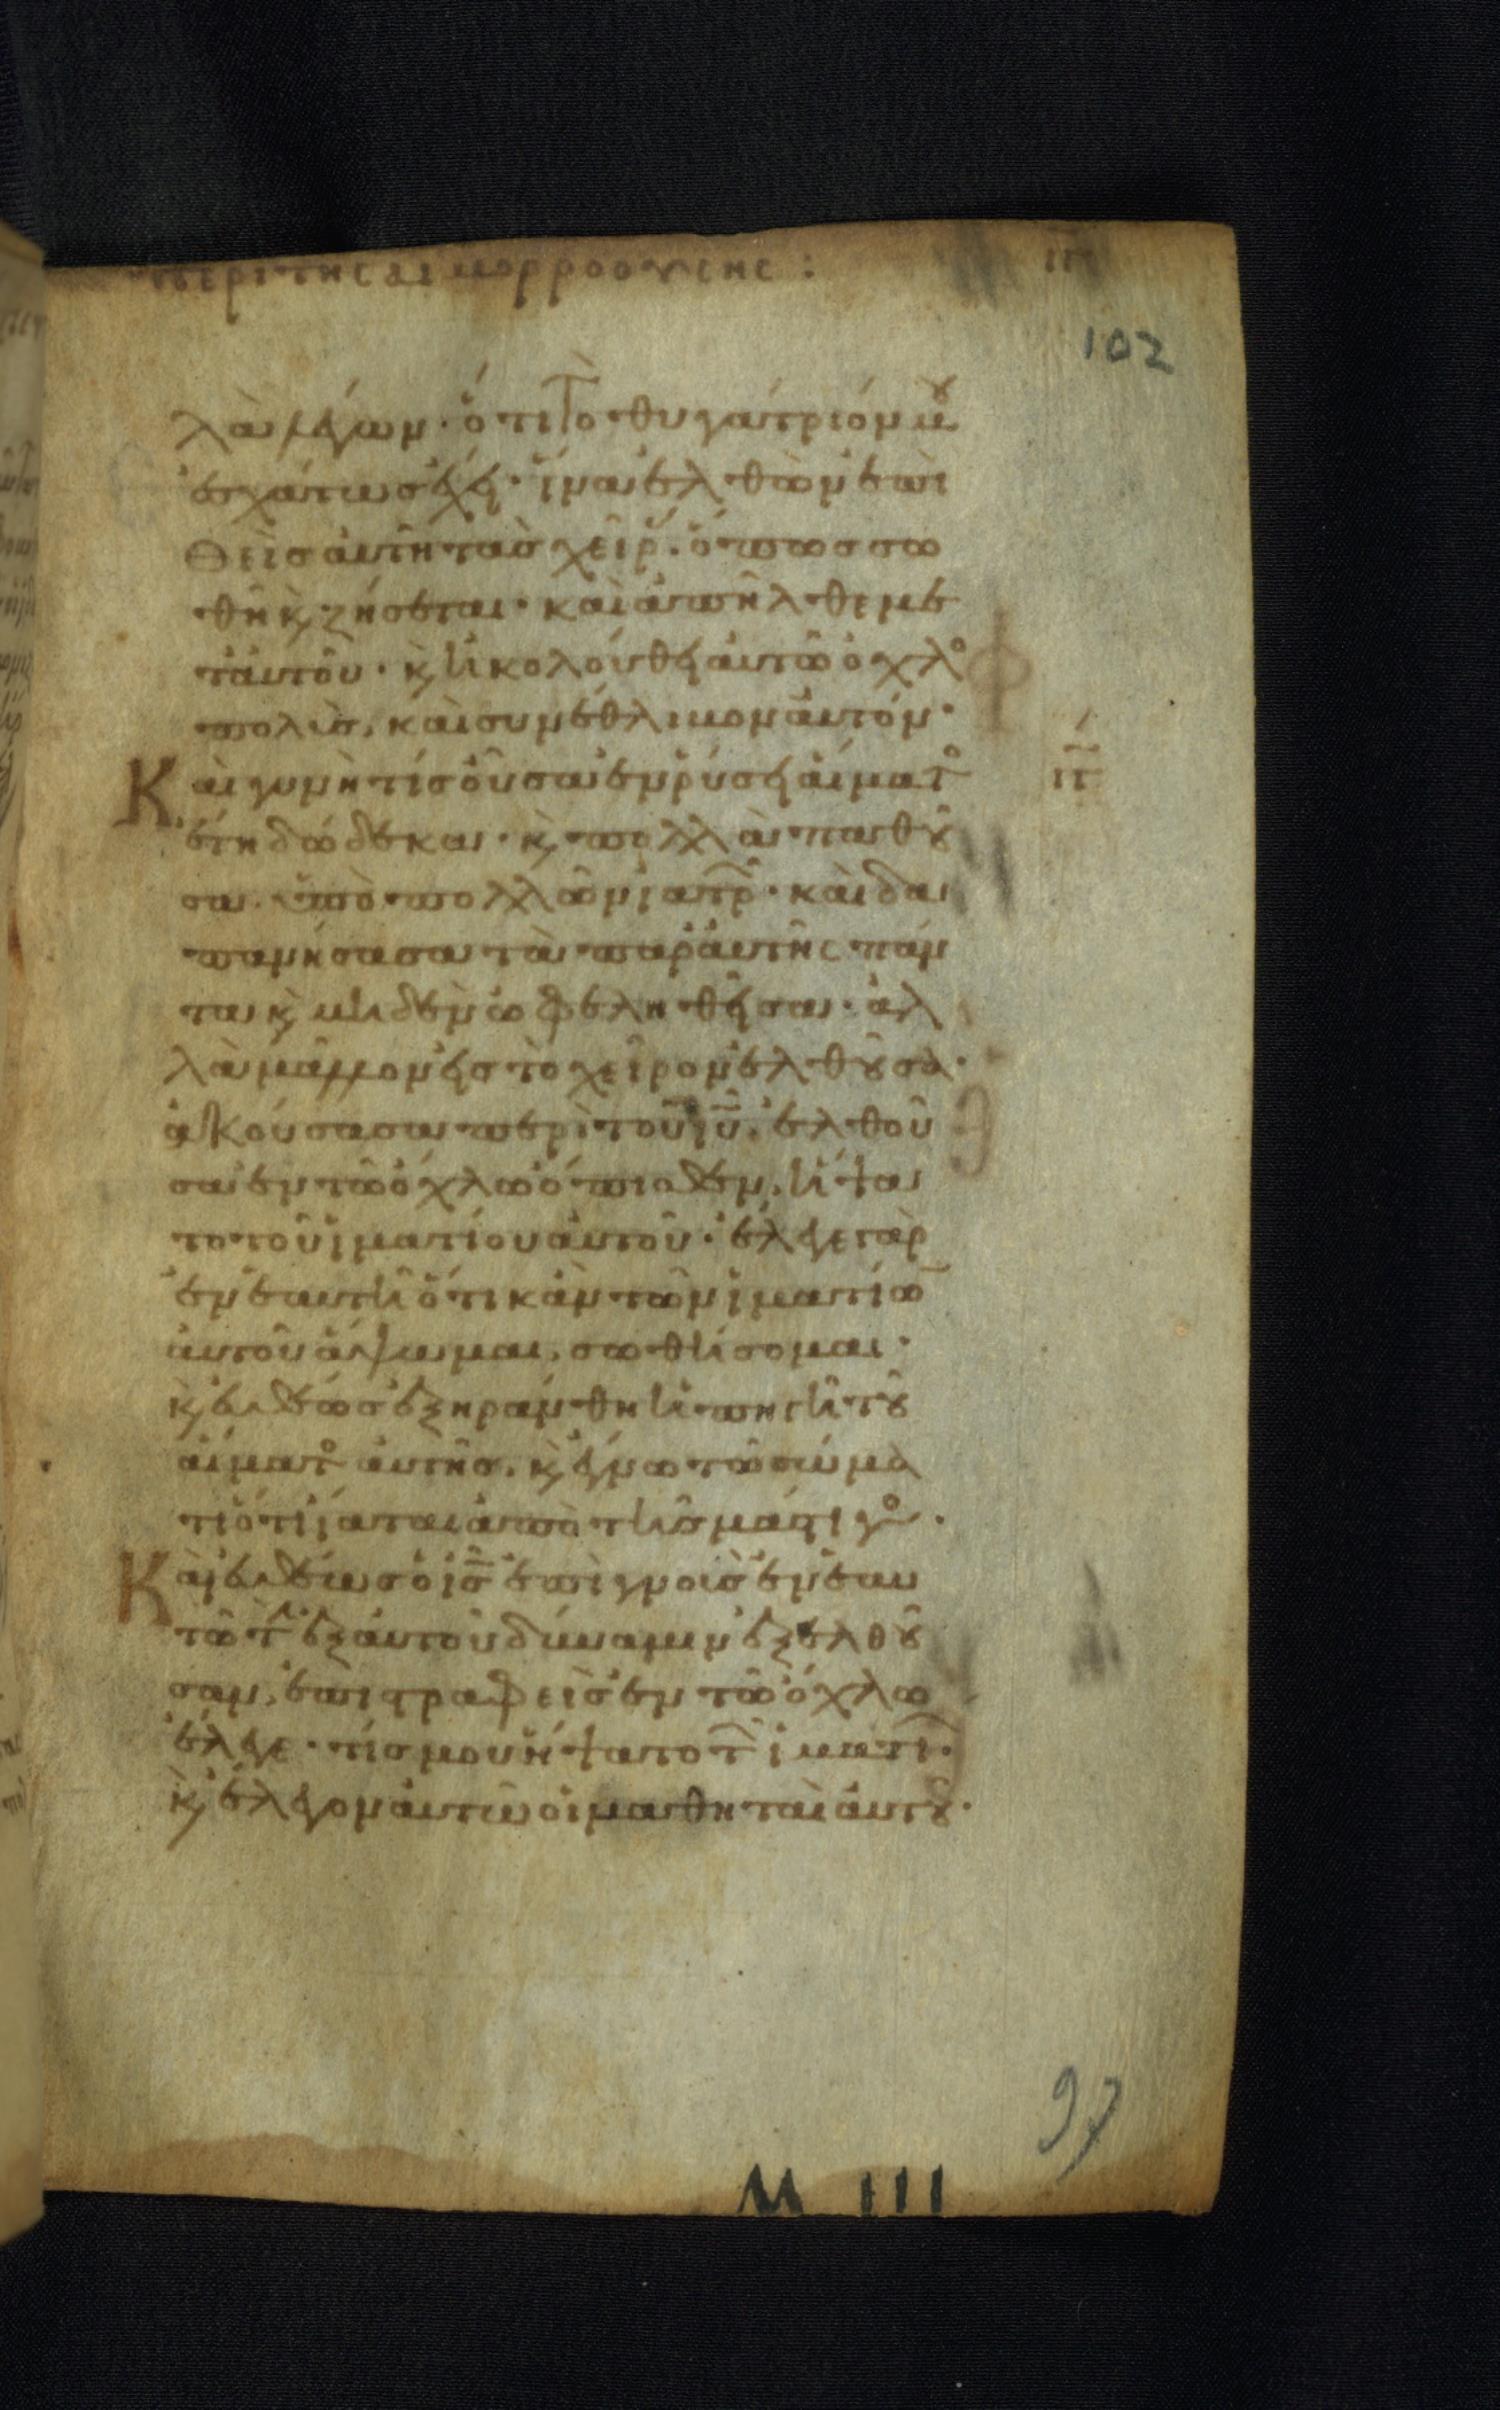 περι της αιμορροουσης :
102
λὰ λέγων · ὅτι τὸ θυγάτριόν μου
ἐσχάτως ἔχει · ἵνα ἐλθὼν ἐπι
θεὶς αὐτῆ τὰσ χεῖρ · ὅπως σω
θῆ κ ζήσεται · καὶ ἀπῆλθε με
τ' αὐτοῦ · κ ἠκολούθει αὐτῶ ὄχλο
πολὺσ, καὶ συνέθλιβον αὐτόν ·
Καὶ γυνὴ τίσ οὖσα ἐν ῥύσει αἵματο
πγ
ἔτη δώδεκα · κ πολλὰ παθοῦ
σα ὑπὸ πολλῶν ἰατρ · καὶ δα
πανήσασα τὰ παρ' αὐτῆς πάν
τα κ μηδὲν ὠφεληθεῖσα · ἀλ
λὰ μᾶλλον εἰσ τὸ χεῖρον ἐλθοῦσα ·
ἀκούσασα περὶ τοῦ ιυ, ἐλθοῦ
σα ἐν τῶ ὄχλω ὄπισθεν, ἥψα
το τοῦ ἱματίου αὐτοῦ · ἔλεγε γὰρ
ἐν ἑαυτῆ ὅτι κἂν τῶν ἱματίω
αὐτοῦ ἅψωμαι, σωθήσομαι ·
κ εὐθέωσ ἐξηράνθη ἡ πηγὴ τοῦ
αἵματο αὐτῆσ, κ ἔγνω τῶ σώμα
τι ὅτι ἴαται ἀπὸ τῆσ μάστιγο ·
Καὶ εὐθέωσ ὁ ισ ἐπιγνοὺσ ἐν ἑαυ
τῶ τ ἐξ αὐτοῦ δύναμιν ἐξελθοῦ
σαν, ἐπιστραφεὶσ ἐν τῶ ὄχλω
ἔλεγε · τίσ μου ἥψατο τ ἱματι ·
κ ἔλεγον αὐτῶ οἱ μαθηταὶ αὐτοῦ ·
97